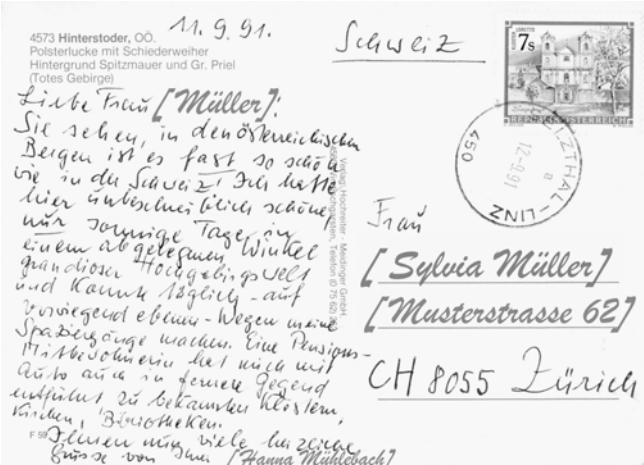 4573 Hinterstoder, OÖ.
Polsterlucke mit Schiederweiher
Hintergrund Spitzmauer und Gr. Priel
(Totes Gebirge)
11.9.91.
Liebe Frau [Müller]!
Sie sehen, in den österreichischen
Bergen ist es fast so schön
wie in der Schweiz! Ich hatte
hier unbeschreiblich schöne,
nur sonnige Tage in
einem abgelegenen Winkel
grandioser Hochgebirgswelt
und konnte täglich - auf
vorwiegend ebenen - Wegen meine
Spaziergänge machen. Eine Pensions-
Mitbewohnerin hat mich mit
Auto auch in fernere Gegend
entführt zu bekannten Klöstern,
Kirchen, Bibliotheken.
Ihnen nun viele herzliche
Grüsse von Ihrer [Hanna Mühlebach]
F 59
Verlag: Hochreiter - Meidinger GmbH
Telefon (0 75 62)
Schweiz
7s
REPUBLIK ÖSTERREICH
LINZ
12-9.91
a
450
Frau
[Sylvia Müller]
[Musterstrasse 62]
CH 8055 Zürich